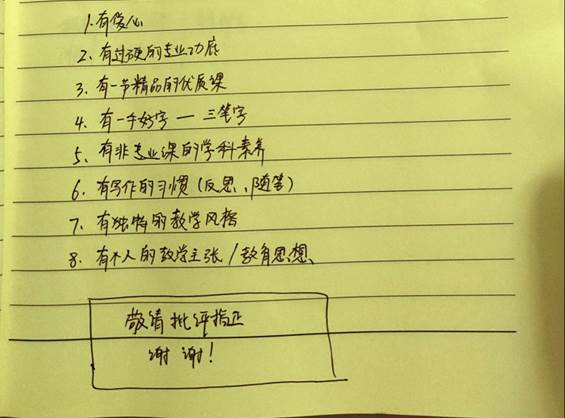 1. 有爱心
2. 有过硬的专业功底
3. 有一节精品的优质课
4. 有一手好字 — 三笔字
5. 有非专业课的学科素养
6. 有写作的习惯(反思、随笔)
7. 有独特的教学风格
8. 有个人的教学主张/教育思想
敬请批评指正
谢谢!